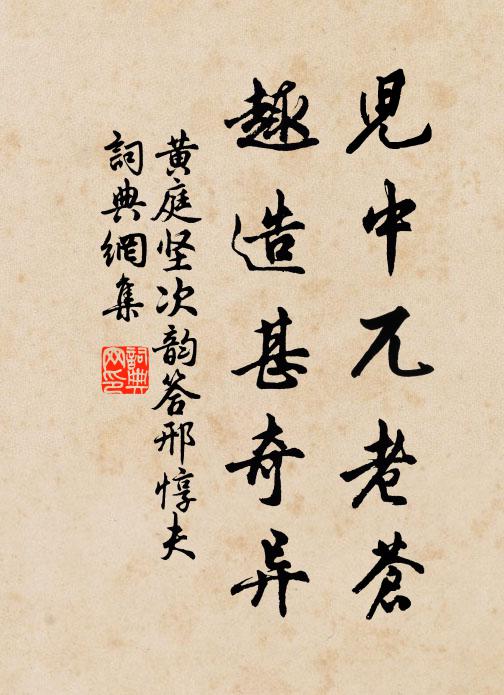 児中兀老蒼
趣造甚奇异
黄庭坚次韵答邢惇夫
詞典網集
詞典网印